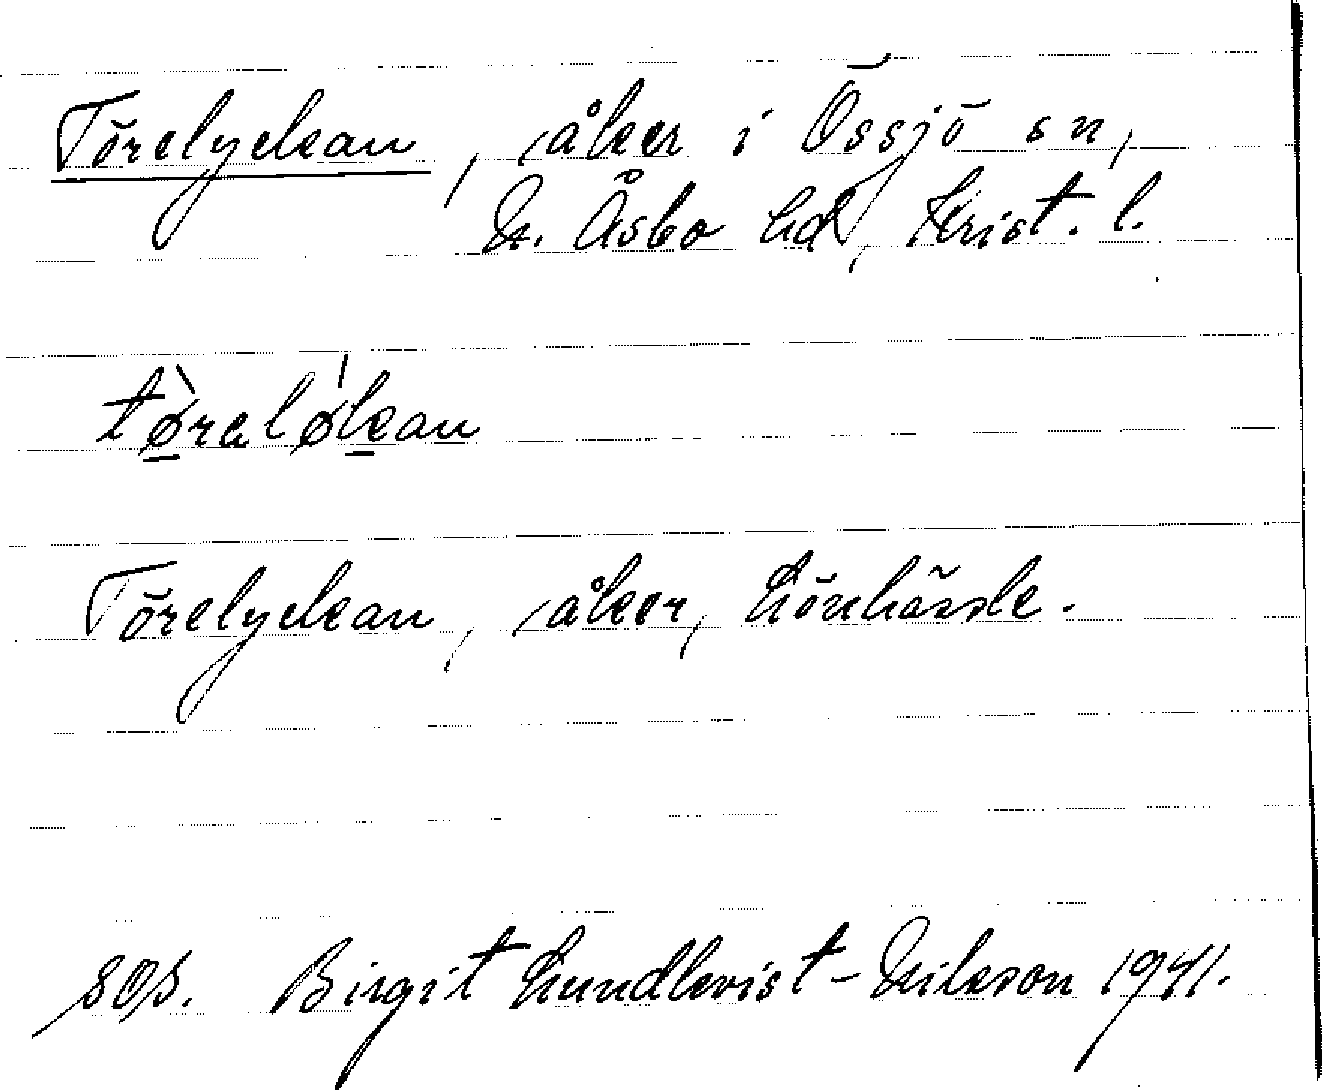 Törelyckan, åker i Össjö sn,
N. Åsbo hd, Krist. l.
tø̱̀rɐlø̍ḵan
Törelyckan, åker, Lönhässle.
sos. Birgit Lundkvist-Nilsson 1941.